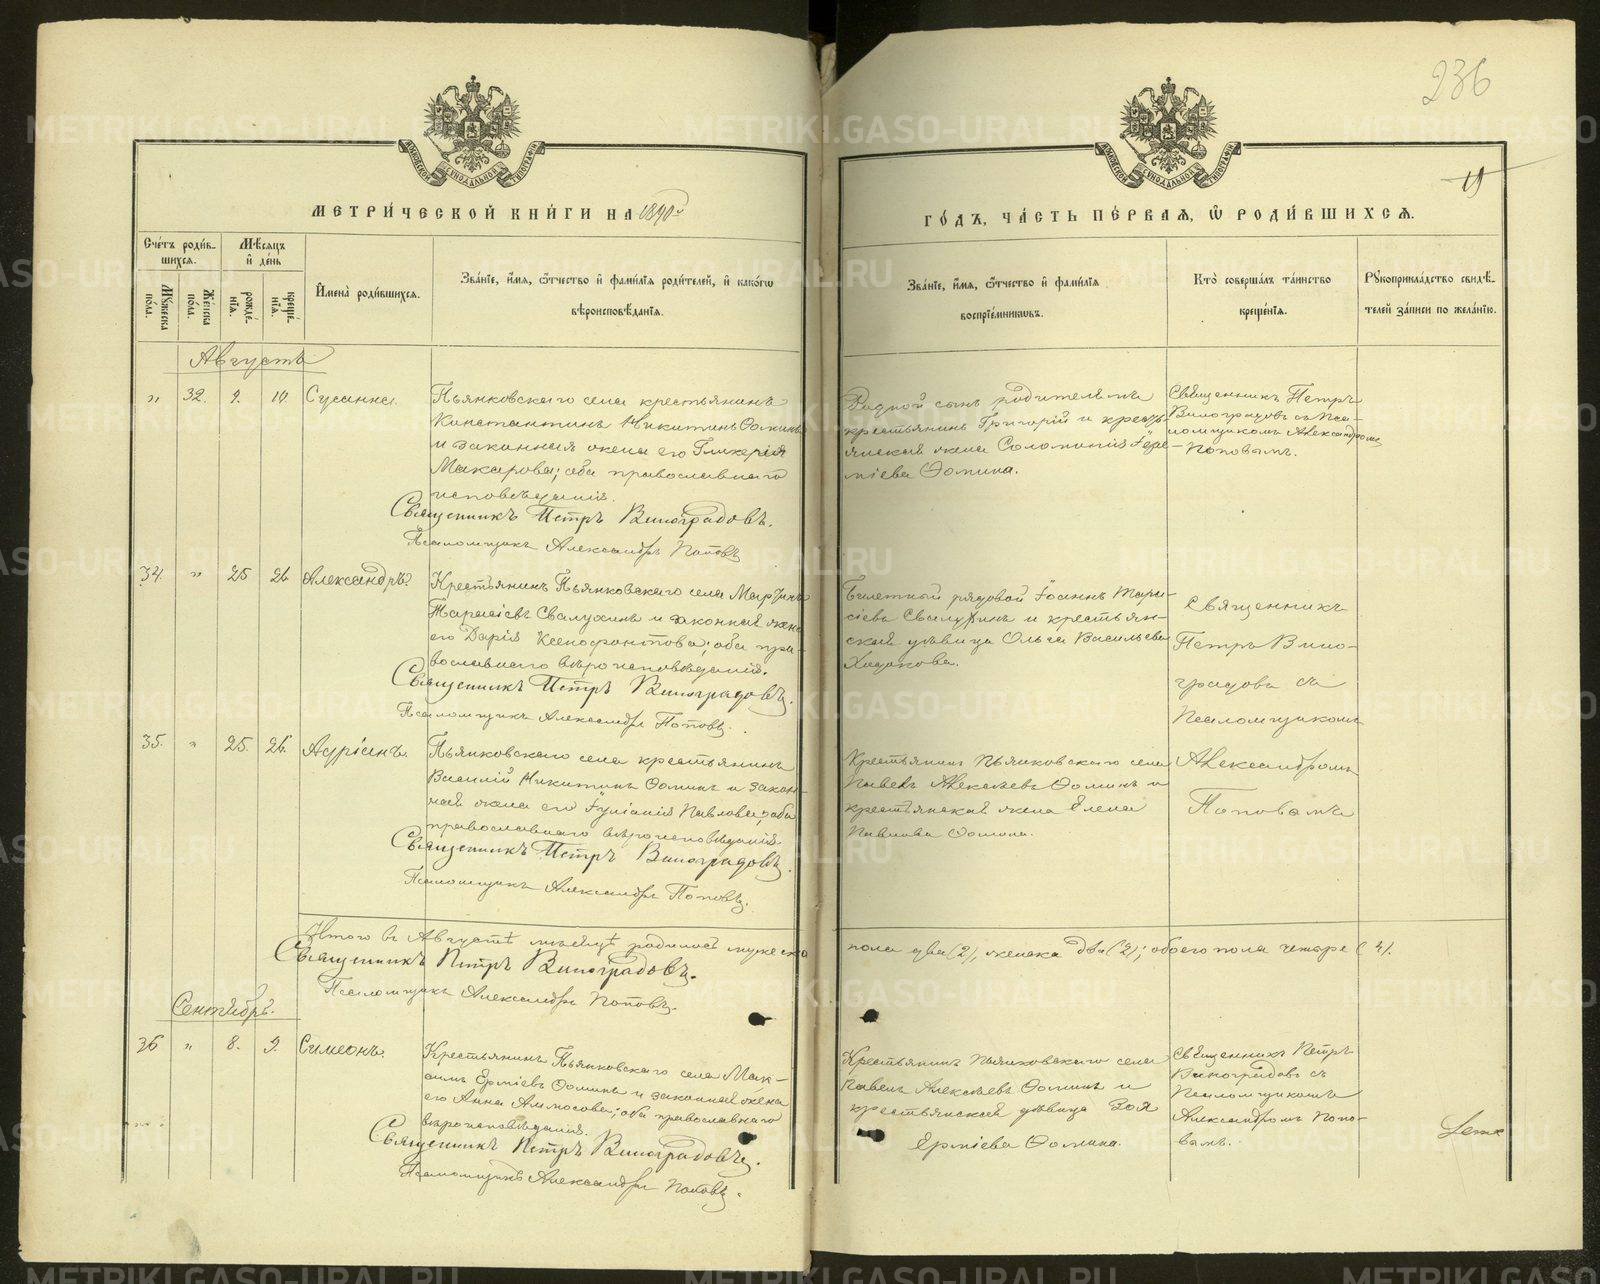 236
19
МОСКОВСКОЙ СѴНОДАЛЬНОЙ ТИПОГРАФІИ
МОСКОВСКОЙ СѴНОДАЛЬНОЙ ТИПОГРАФІИ
МЕТРИ́ЧЕСКОЙ КНИ́ГИ НА 1890й
ГО́ДЪ, ЧА́СТЬ ПЕ́РВАЯ, Ѡ РОДИ́ВШИХСЯ.
Сче́тъ роди́в-
шихся.
Мꙋжеска по́ла.
Же́нска по́ла.
Мѣ́сяцъ
и де́нь
рожде́-
нїя.
креще́-
нїя.
И́мена̀ роди́вшихся.
Зва́нїе, и́мя, ѻ́тчество и фами́лїя роди́телей, и како́гѡ
вѣроисповѣ́данїя.
Зва́нїе, и́мя, ѻ́тчество и фами́лїя
воспрїе́мникѡвъ.
Кто̀ соверша́лъ та́инство
креще́нїя.
Рꙋкоприкла́дство свидѣ́-
телей за́писи по жела́нїю.
Августъ
" 32. 9. 10. Сусанна.
Пьянковскаго села крестьянинъ
Константинъ Никитинъ Ѳоминъ
и законная жена его Гликерія
Макарова; оба православнаго
исповѣданія.
Священникъ Петръ Виноградовъ.
Псаломщикъ Александръ Поповъ
Родной сынъ родителя
крестьянинъ Григорій и крестьянская жена Соломонія
Ѳомина.
Священникъ Петръ
Виноградовъ съ Пса-
ломщикомъ Александромъ
Поповымъ.
34. " 25 26 Александръ.
Крестьянинъ Пьянковскаго села
Тарасіевъ и законная жена
его Дарія Ксенофонтова; оба пра-
вославнаго вѣроисповѣданія.
Священникъ Петръ Виноградовъ.
Псаломщикъ Александръ Поповъ.
Билетный рядовой Іоаннъ Тара-
сіевъ и крестьян-
ская дѣвица Ольга Васильева
Священникъ
Петръ Вино-
градовъ съ
Псаломщикомъ
Александромъ
Поповымъ
35. " 25. 26. Адріанъ.
Пьянковскаго села крестьянинъ
Василій Никитинъ Ѳоминъ и закон-
ная жена его Іуліанія Павлова; оба
православнаго вѣроисповѣданія.
Священникъ Петръ Виноградовъ.
Псаломщикъ Александръ Поповъ.
Крестьянинъ Пьянковскаго села
Павелъ Алексѣевъ Ѳоминъ и
крестьянская жена Елена
Павлова Ѳомина.
Итого въ Августѣ мѣсяцѣ родилось мужеска
пола два (2), женска два (2); обоего пола четыре (4).
Священникъ Петръ Виноградовъ.
Псаломщикъ Александръ Поповъ.
Сентябрь.
36 " 8. 9. Симеонъ.
Крестьянинъ Пьянковскаго села Мак-
симъ Ерміевъ Ѳоминъ и законная жена
его Анна Аммосова; оба православнаго
вѣроисповѣданія.
Священникъ Петръ Виноградовъ.
Псаломщикъ Александръ Поповъ.
Крестьянинъ Пьянковскаго села
Павелъ Алексѣевъ Ѳоминъ и
крестьянская дѣвица Зоя
Ерміева Ѳомина.
Священникъ Петръ
Виноградовъ съ
Псаломщикомъ
Александромъ Попо-
вымъ.
METRIKI.GASO-URAL.RU